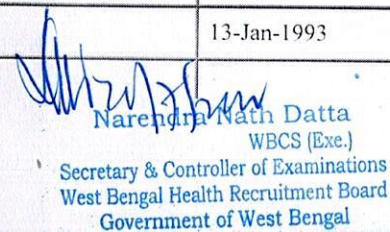 13-Jan-1993
Narendra Nath Datta
WBCS (Exe.)
Secretary & Controller of Examinations
West Bengal Health Recruitment Board
Government of West Bengal